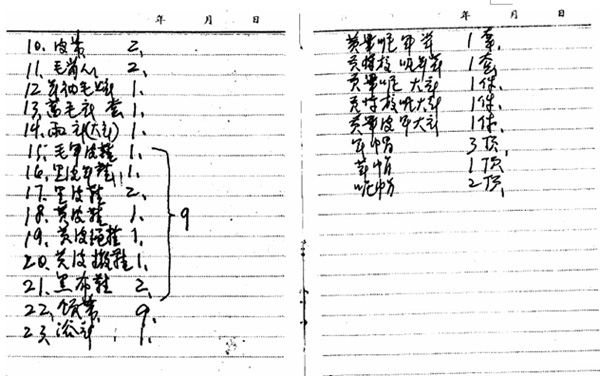 年 月 日
10. 皮带 2,
11. 毛背心 2,
12. 长袖毛衫 1,
13. 毛衣 套 1,
14. 雨衣(大衣) 1,
15. 毛军皮鞋 1,
16. 黑皮军鞋 1,
17. 黑皮鞋 2,
18. 黄皮鞋 1,
19. 黄皮绳鞋 1,
20. 黄皮 鞋 1,
21. 黑布鞋 2,
9
22. 领带 9,
23. 浴衣 1,
年 月 日
黄军呢军装 1套,
黄特校呢军装 1套
黄军呢大衣 1件,
黄特校呢大衣 1件,
黄军皮军大衣 1件,
军帽 3顶,
草帽 1顶
呢帽 2顶,